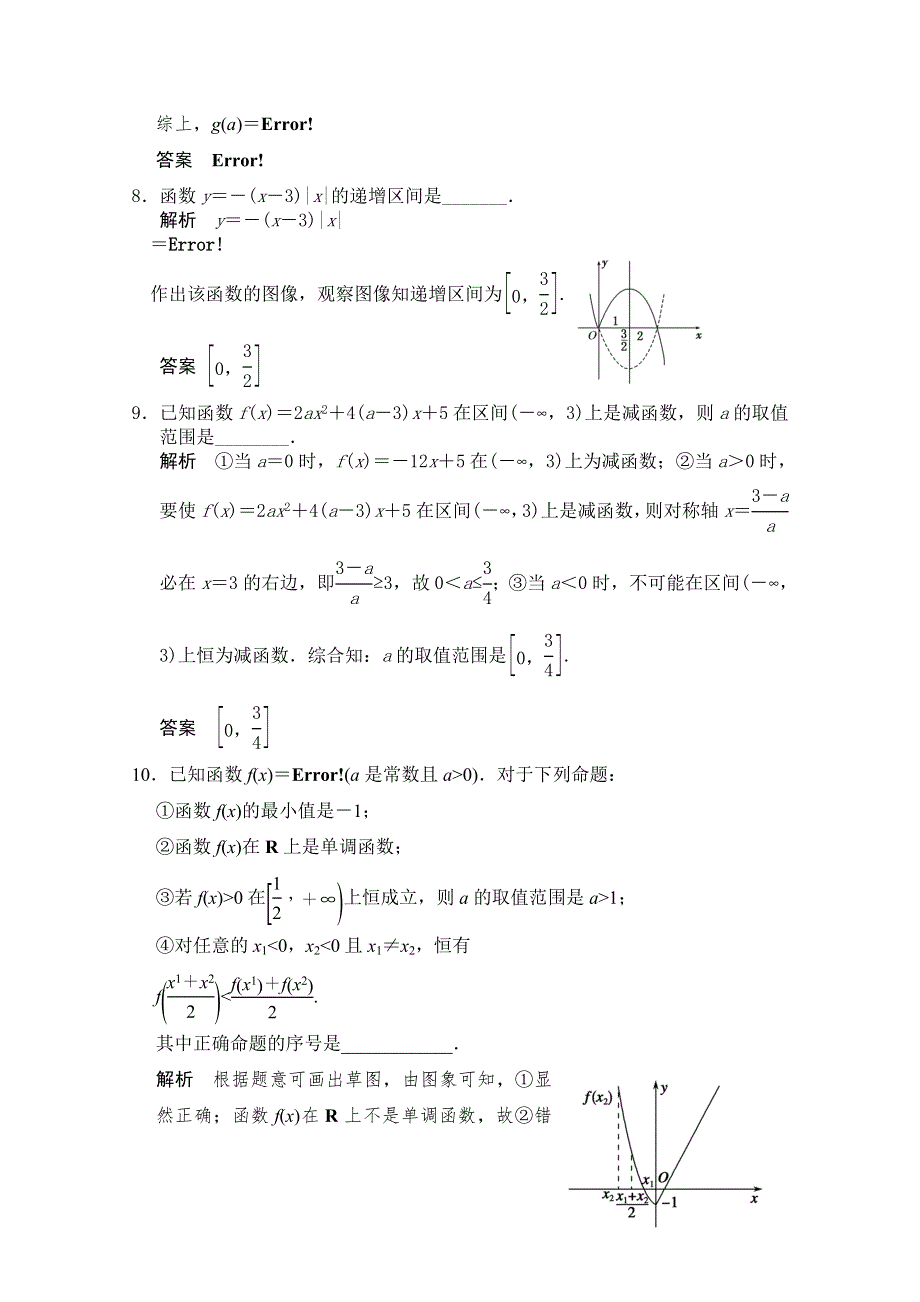 综上，g(a)＝Error!
答案　Error!
8．函数 y＝－(x－3)|x|的递增区间是_______．
解析　y＝－(x－3)|x|
＝Error!
作出该函数的图像，观察图像知递增区间为[0，3/2]．
y
O
1
3/2
2
x
答案　[0，3/2]
9．已知函数 f(x)＝2ax²＋4(a－3)x＋5 在区间(－∞，3)上是减函数，则 a 的取值
范围是________．
解析　①当 a＝0 时，f(x)＝－12x＋5 在(－∞，3)上为减函数；②当 a＞0 时，
要使 f(x)＝2ax²＋4(a－3)x＋5 在区间(－∞，3)上是减函数，则对称轴 x＝(3－a)/a
必在 x＝3 的右边，即(3－a)/a≥3，故 0＜a≤3/4；③当 a＜0 时，不可能在区间(－∞，
3)上恒为减函数．综合知：a 的取值范围是[0，3/4]．
答案　[0，3/4]
10．已知函数 f(x)＝Error!(a 是常数且 a>0)．对于下列命题：
①函数 f(x)的最小值是－1；
②函数 f(x)在 R 上是单调函数；
③若 f(x)>0 在[1/2，＋∞)上恒成立，则 a 的取值范围是 a>1；
④对任意的 x₁<0，x₂<0 且 x₁≠x₂，恒有
f((x¹＋x²)/2)<(f(x¹)＋f(x²))/2.
其中正确命题的序号是____________．
解析　根据题意可画出草图，由图象可知，①显
然正确；函数 f(x)在 R 上不是单调函数，故②错
f(x₂)
y
x₁
O
x₂
(x₁+x₂)/2
−1
x